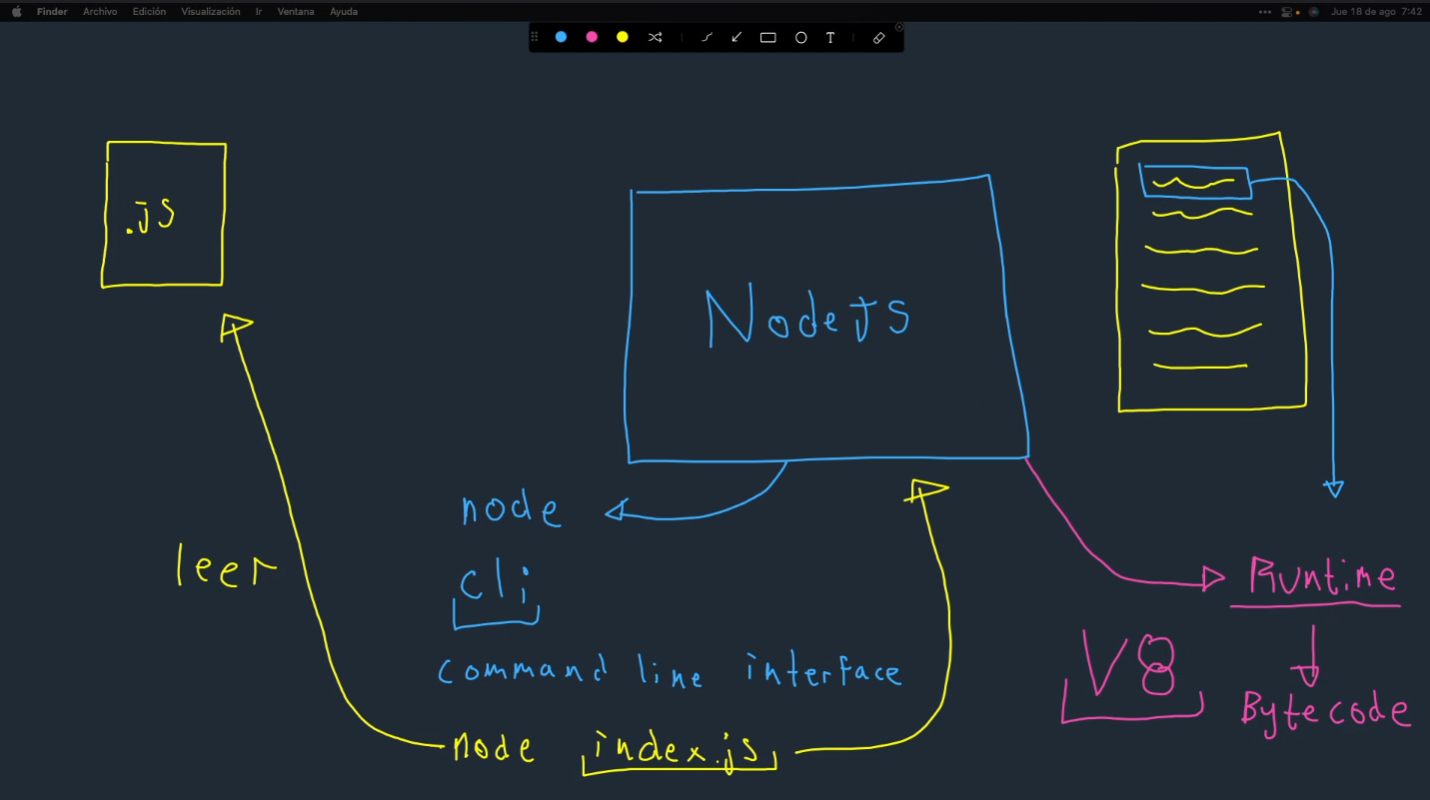 Finder Archivo Edición Visualización Ir Ventana Ayuda
Jue 18 de ago 7:42
T
.js
NodeJS
node
cli
command line interface
leer
node index.js
Runtime
V8
Bytecode